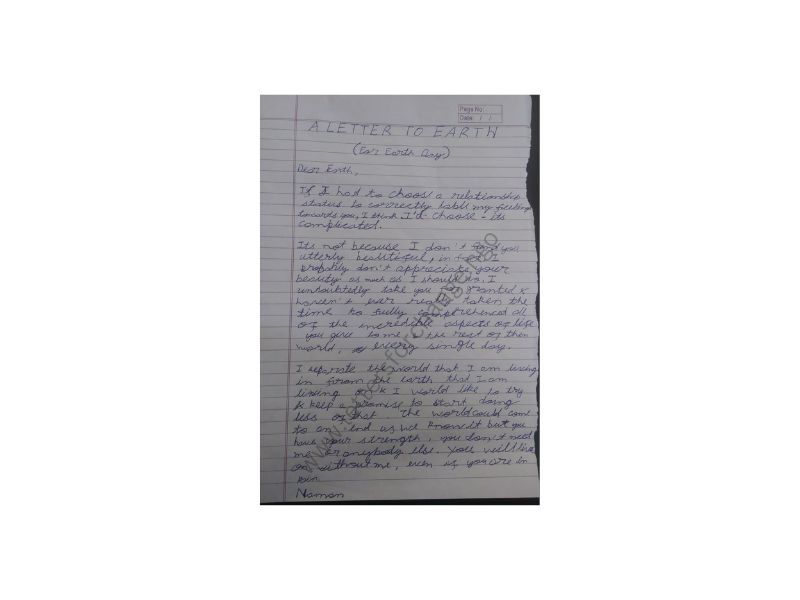 Page No:
Date: / /
A LETTER TO EARTH
(For Earth Day)
Dear Earth,
If I had to choose a relationship
status to correctly lable my feelings
towards you, I think I'd choose - its
complicated.
Its not because I don't find you
utterly beautiful, in fact I
probably don't appreciate your
beauty as much as I should do. I
undoubtedly take you for granted &
haven't ever really taken the
time to fully comprehenced all
of the incredible aspects of life
you give to me, & the rest of then
world, every single day.
I separate the world that I am living
in from the earth that I am
living on & I world like to try
& keep a promise to start doing
less of that. The world could come
to an end as we know it but you
have your strength, you don't need
me or anybody else. You will live
on without me, even if you are in
Naman